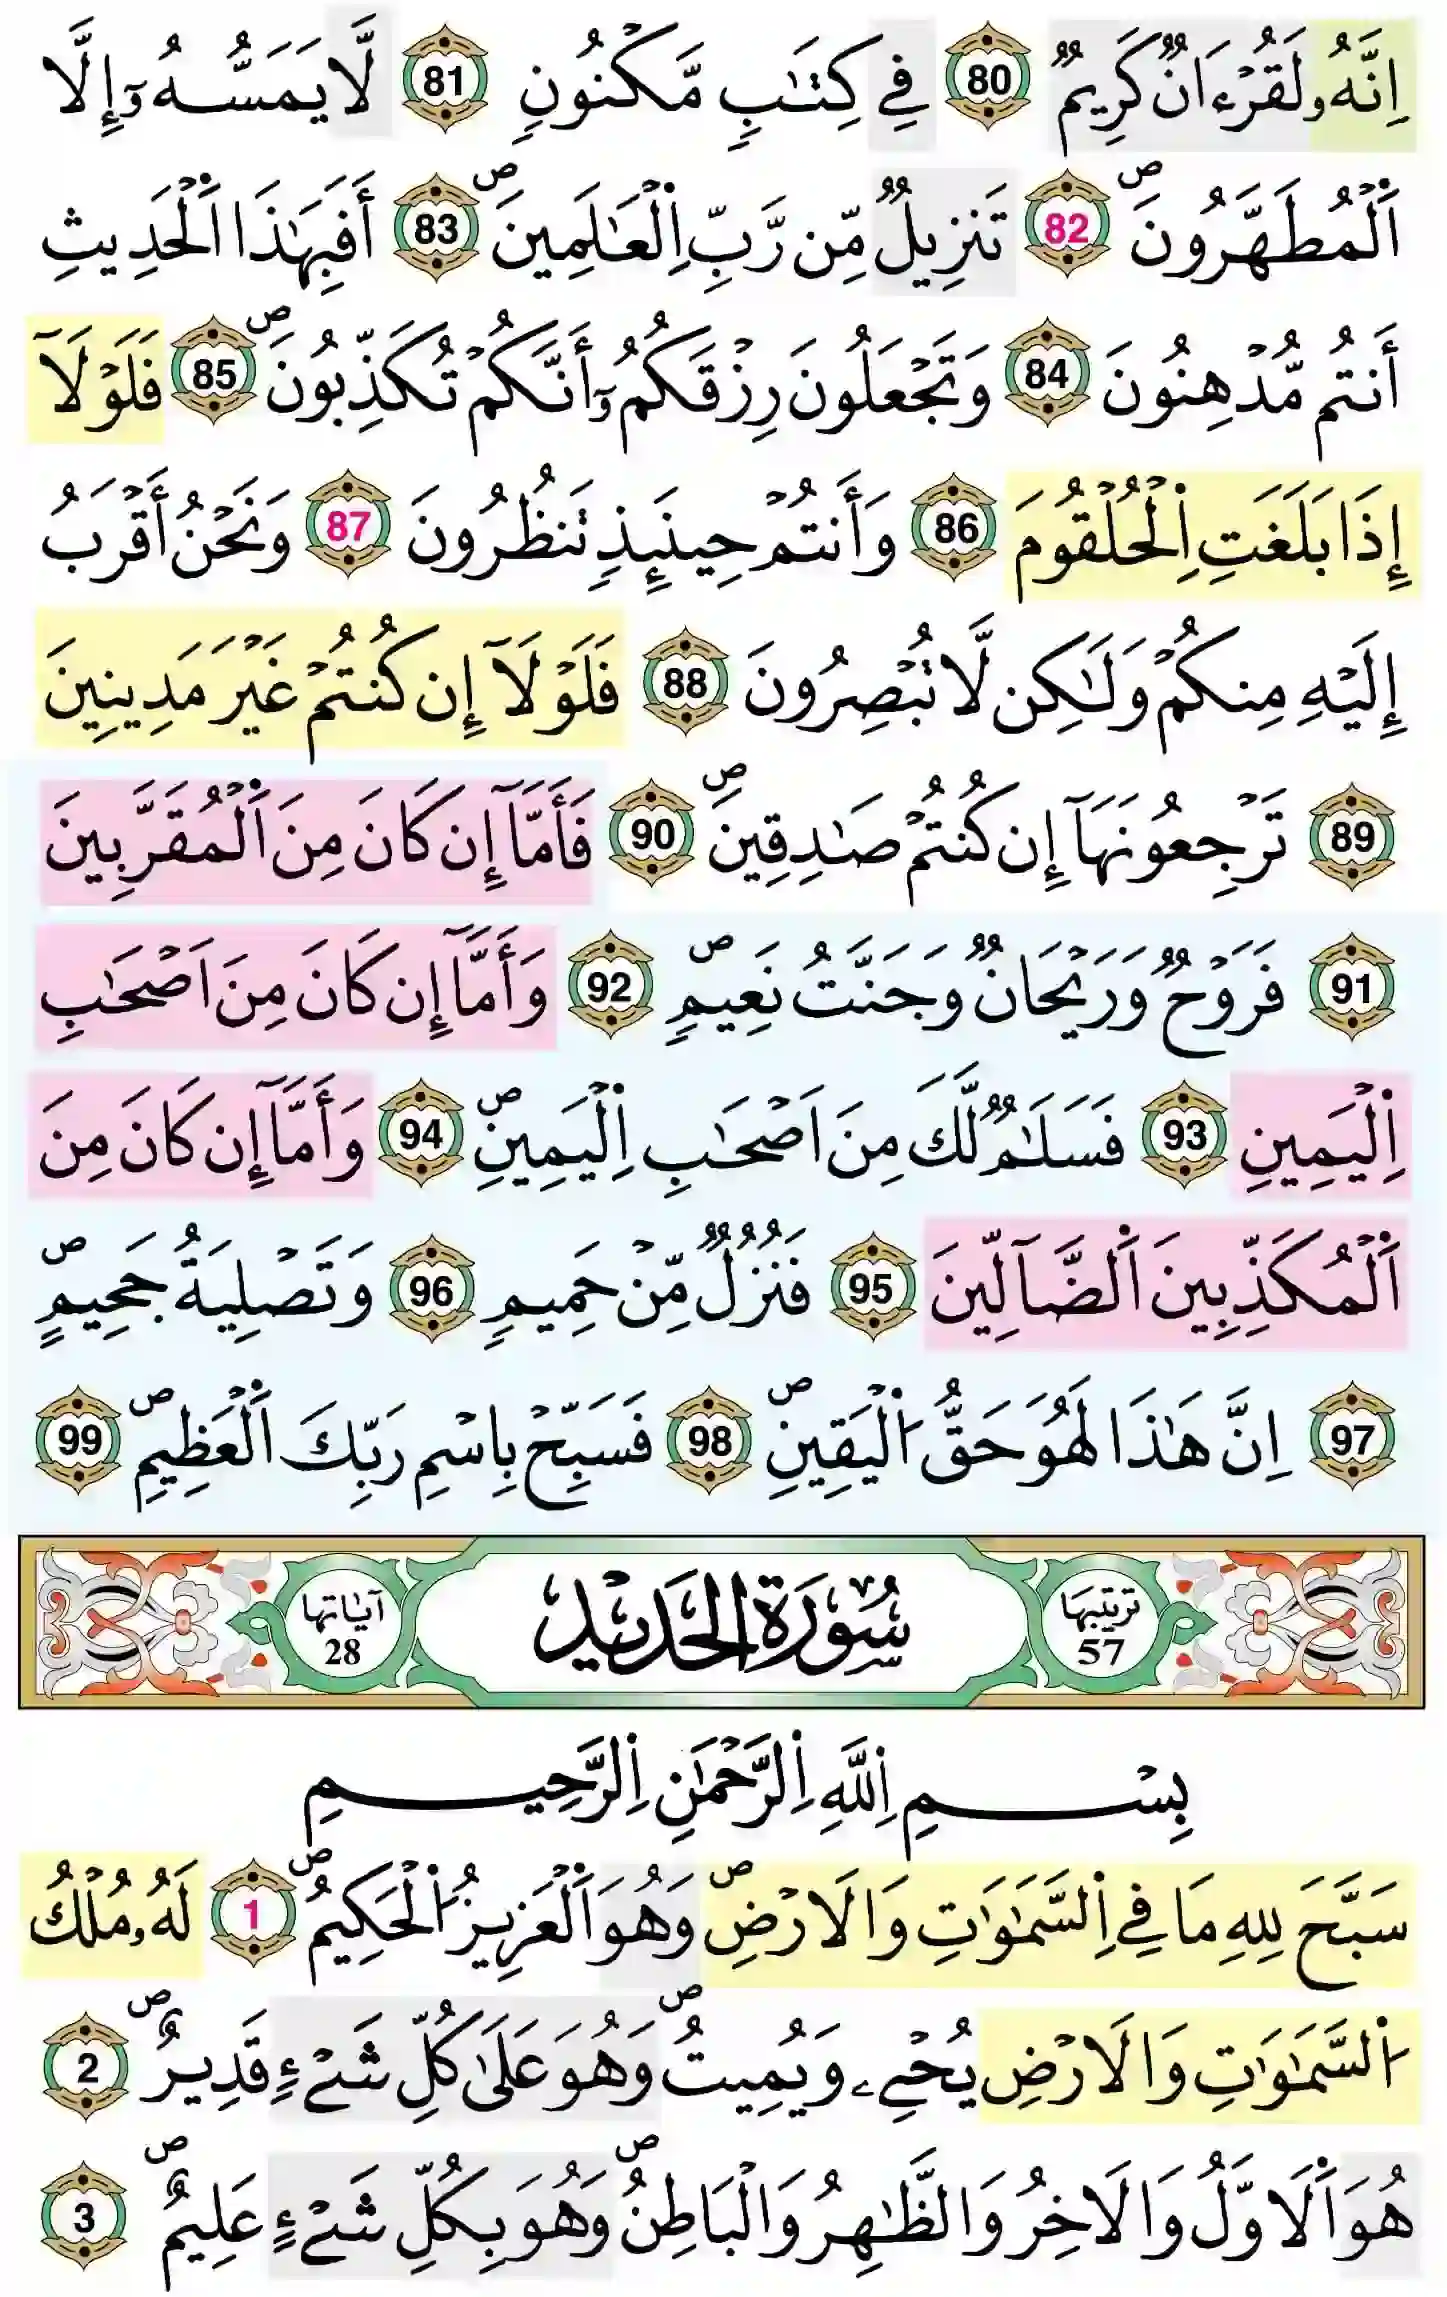 اِنَّهُۥ لَقُرْءَانٌ كَرِيمٌ 80 فِے كِتَٰبٍ مَّكْنُونٍ 81 لَّا يَمَسُّهُۥٓ إِلَّا
اَ۬لْمُطَهَّرُونَۖ 82 تَنزِيلٌ مِّن رَّبِّ اِ۬لْعَٰلَمِينَۖ 83 أَفَبِهَٰذَا اَ۬لْحَدِيثِ
أَنتُم مُّدْهِنُونَ 84 وَتَجْعَلُونَ رِزْقَكُمُۥٓ أَنَّكُمْ تُكَذِّبُونَۖ 85 فَلَوْلَآ
إِذَا بَلَغَتِ اِ۬لْحُلْقُومَ 86 وَأَنتُمْ حِينَئِذٖ تَنظُرُونَ 87 وَنَحْنُ أَقْرَبُ
إِلَيْهِ مِنكُمْ وَلَٰكِن لَّا تُبْصِرُونَ 88 فَلَوْلَآ إِن كُنتُمْ غَيْرَ مَدِينِينَ
89 تَرْجِعُونَهَآ إِن كُنتُمْ صَٰدِقِينَۖ 90 فَأَمَّآ إِن كَانَ مِنَ اَ۬لْمُقَرَّبِينَ
91 فَرَوْحٌ وَرَيْحَانٌ وَجَنَّتُ نَعِيمٍۖ 92 وَأَمَّآ إِن كَانَ مِنَ اَصْحَٰبِ
اِ۬لْيَمِينِ 93 فَسَلَٰمٌ لَّكَ مِنَ اَصْحَٰبِ اِ۬لْيَمِينِۖ 94 وَأَمَّآ إِن كَانَ مِنَ
اَ۬لْمُكَذِّبِينَ اَ۬لضَّآلِّينَ 95 فَنُزُلٌ مِّنْ حَمِيمٍ 96 وَتَصْلِيَةُ جَحِيمٍۖ
97 اِنَّ هَٰذَا لَهُوَ حَقُّ اُ۬لْيَقِينِۖ 98 فَسَبِّحْ بِاسْمِ رَبِّكَ اَ۬لْعَظِيمِۖ 99
ترتيبها 57 سُورَةُ الحَدِيد آياتها 28
بِسْمِ اِ۬للَّهِ اِ۬لرَّحْمَٰنِ اِ۬لرَّحِيمِ
سَبَّحَ لِلهِ مَا فِے اِ۬لسَّمَٰوَٰتِ وَالَارْضِۖ وَهُوَ اَ۬لْعَزِيزُ اُ۬لْحَكِيمُۖ 1 لَهُۥ مُلْكُ
اُ۬لسَّمَٰوَٰتِ وَالَارْضِ يُحْيِۦ وَيُمِيتُۖ وَهُوَ عَلَىٰ كُلِّ شَےْءٖ قَدِيرٌۖ 2
هُوَ اَ۬لَاوَّلُ وَالَاخِرُ وَالظَّٰهِرُ وَالْبَاطِنُۖ وَهُوَ بِكُلِّ شَےْءٍ عَلِيمٌۖ 3